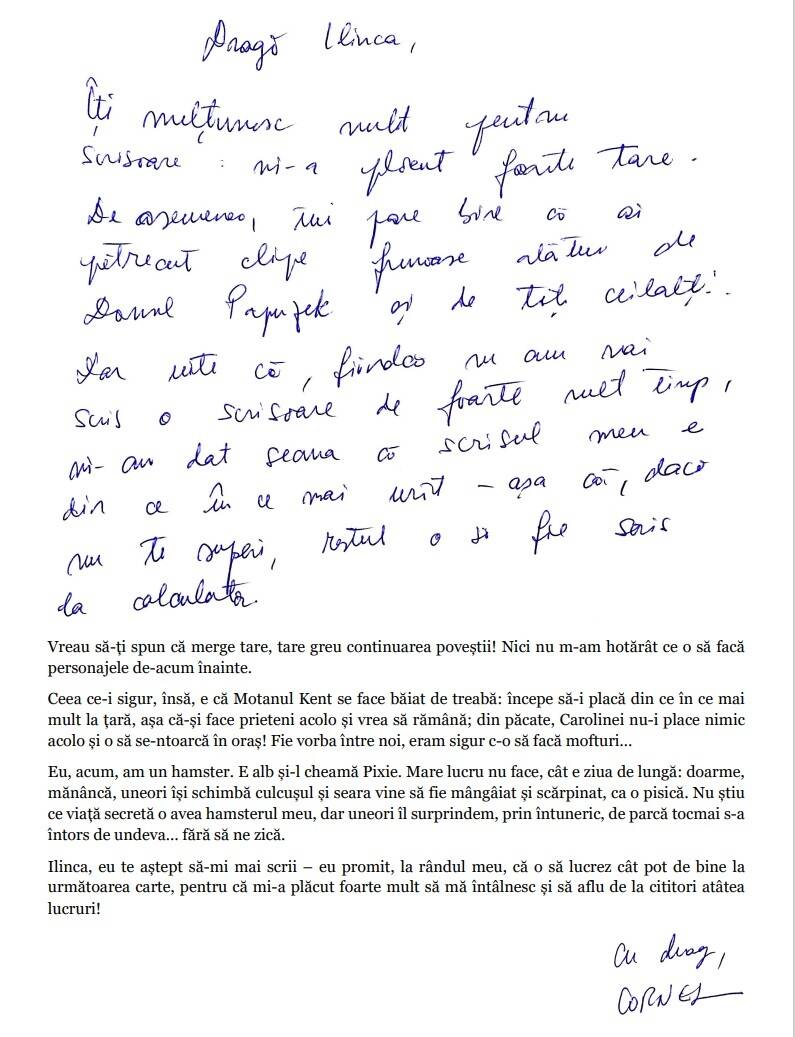 Dragă Ilinca,
Îți mulțumesc mult pentru
scrisoare : mi-a plăcut foarte tare.
De asemenea, îmi pare bine că ai
petrecut clipe frumoase alături de
Domnul Papușek și de toți ceilalți.
Dar uite că, fiindcă nu am mai
scris o scrisoare de foarte mult timp,
mi-am dat seama că scrisul meu e
din ce în ce mai urît – așa că, dacă
nu te superi, restul o să fie scris
la calculator.
Vreau să-ți spun că merge tare, tare greu continuarea poveștii! Nici nu m-am hotărât ce o să facă
personajele de-acum înainte.
Ceea ce-i sigur, însă, e că Motanul Kent se face băiat de treabă: începe să-i placă din ce în ce mai
mult la țară, așa că-și face prieteni acolo și vrea să rămână; din păcate, Carolinei nu-i place nimic
acolo și o să se-ntoarcă în oraș! Fie vorba între noi, eram sigur c-o să facă mofturi...
Eu, acum, am un hamster. E alb și-l cheamă Pixie. Mare lucru nu face, cât e ziua de lungă: doarme,
mănâncă, uneori își schimbă culcușul și seara vine să fie mângâiat și scărpinat, ca o pisică. Nu știu
ce viață secretă o avea hamsterul meu, dar uneori îl surprindem, prin întuneric, de parcă tocmai s-a
întors de undeva... fără să ne zică.
Ilinca, eu te aștept să-mi mai scrii – eu promit, la rândul meu, că o să lucrez cât pot de bine la
următoarea carte, pentru că mi-a plăcut foarte mult să mă întâlnesc și să aflu de la cititori atâtea
lucruri!
Cu drag,
CORNEL